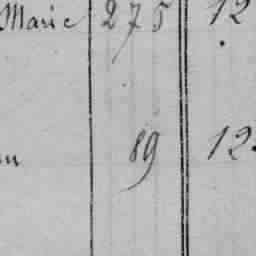 Marie 275 12
89 12